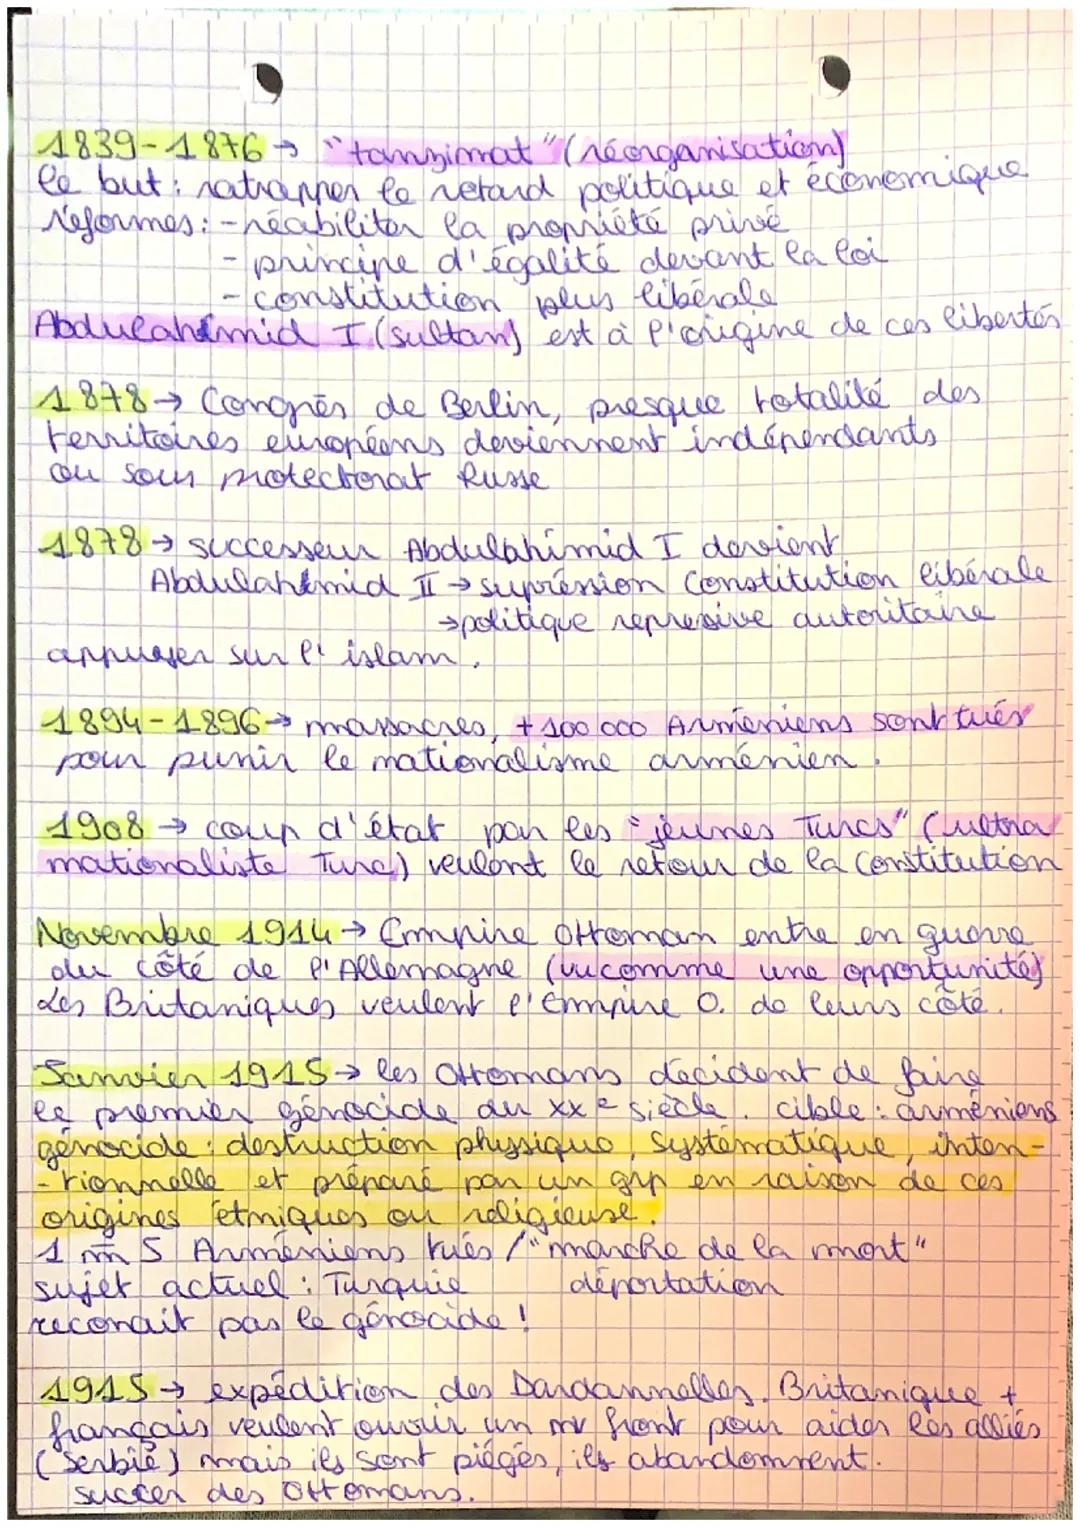 1839-1876 → "tanzimat" (réorganisation)
le but : ratrapper le retard politique et économique
réformes : - réabiliter la propriété privé
- principe d'égalité devant la loi
- constitution plus libérale
Abdulahimid I (sultan) est à l'origine de ces libertés
1878 → Congrès de Berlin, presque totalité des
territoires européens deviennent indépendants
ou sous protectorat Russe
1878 → successeur Abdulahimid I devient
Abdulahimid II → supréssion Constitution libérale
→ politique represive autoritaire
appuyer sur l'islam.
1894-1896 → massacres, + 100 000 Arméniens sont tués
pour punir le nationalisme arménien.
1908 → coup d'état par les "jeunes Turcs" (ultra
nationaliste Turc) veulent le retour de la Constitution
Novembre 1914 → Empire Ottoman entre en guerre
du côté de l'Allemagne (vu comme une opportunité)
Les Britaniques veulent l'Empire O. de leurs côté.
Janvier 1915 → les Ottomans décident de faire
le premier génocide du XXe siècle. cible : arméniens
génocide : destruction physique, systématique, inten-
-tionnelle et préparé par un grp en raison de ces
origines étniques ou religieuse.
1 m 5 Arméniens tués / "marche de la mort"
sujet actuel : Turquie déportation
reconait pas le génocide !
1915 → expédition des Dardannelles. Britanique +
français veulent ouvrir un nv front pour aider les alliés
(Serbie) mais ils sont piégés, ils abandonnent.
succer des Ottomans.